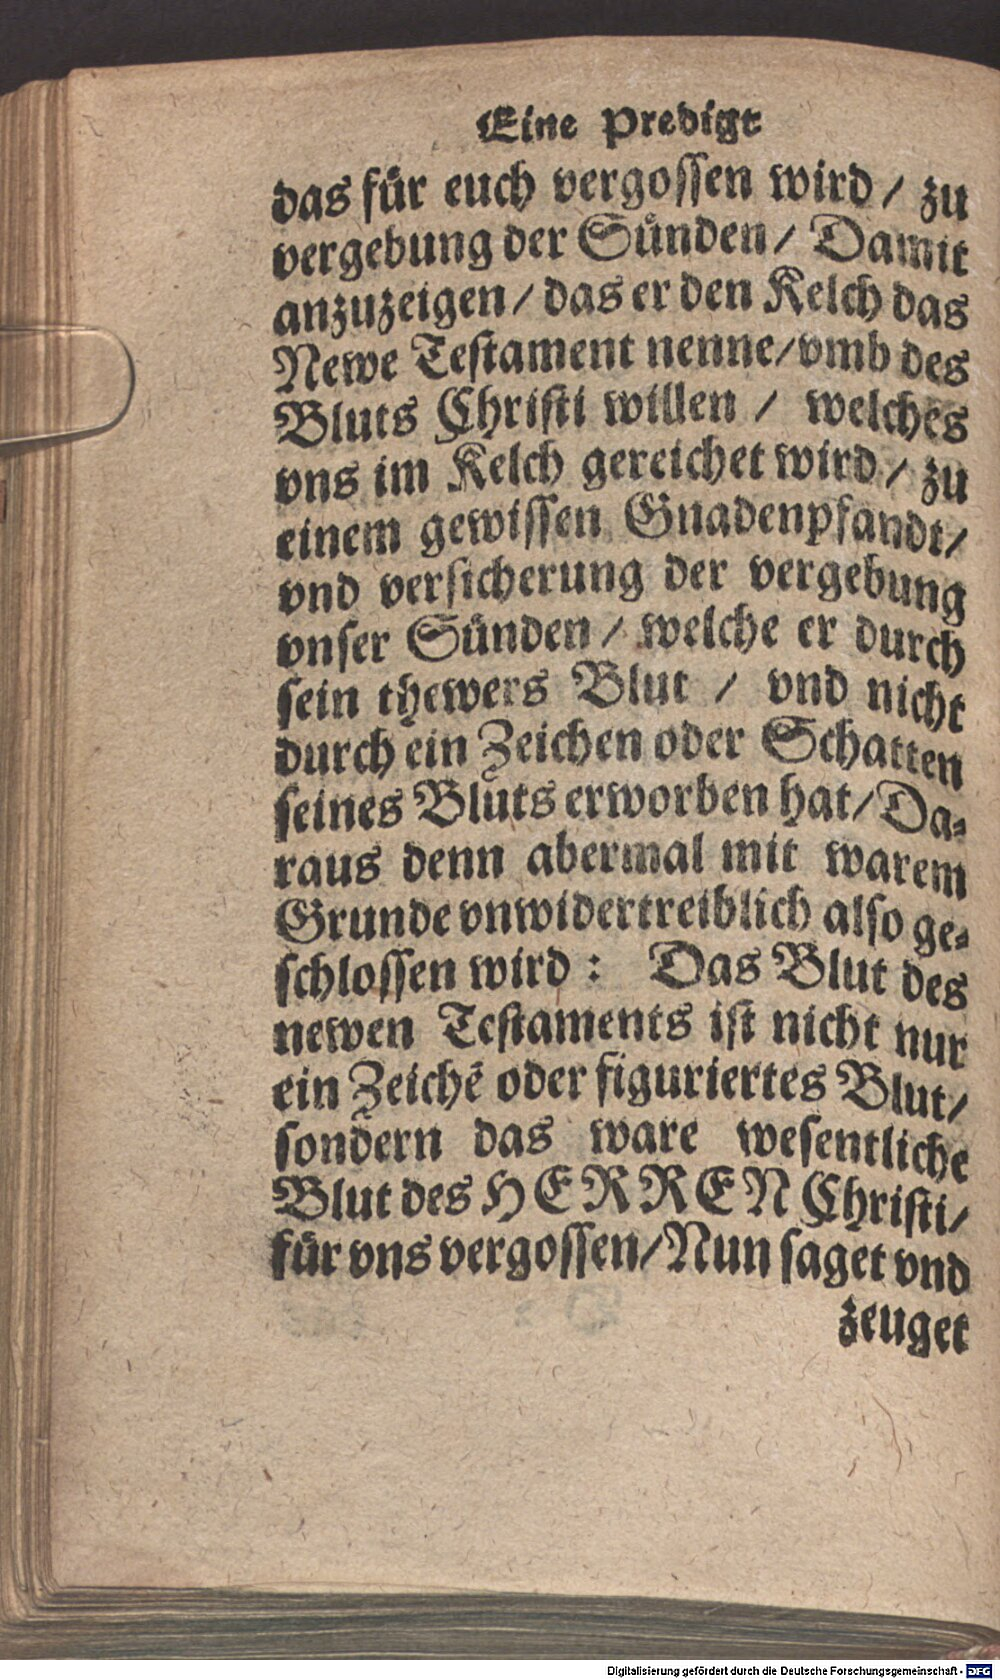 Eine Predigt
das für euch vergossen wird / zu
vergebung der Sünden / Damit
anzuzeigen / das er den Kelch das
Newe Testament nenne / vmb des
Bluts Christi willen / welches
vns im Kelch gereichet wird / zu
einem gewissen Gnadenpfandt /
vnd versicherung der vergebung
vnser Sünden / welche er durch
sein thewers Blut / vnd nicht
durch ein Zeichen oder Schatten
seines Bluts erworben hat / Da-
raus denn abermal mit warem
Grunde vnwidertreiblich also ge-
schlossen wird : Das Blut des
newen Testaments ist nicht nur
ein Zeichẽ oder figuriertes Blut /
sondern das ware wesentliche
Blut des HERREN Christi /
für vns vergossen / Nun saget vnd
zeuget
Digitalisierung gefördert durch die Deutsche Forschungsgemeinschaft - DFG